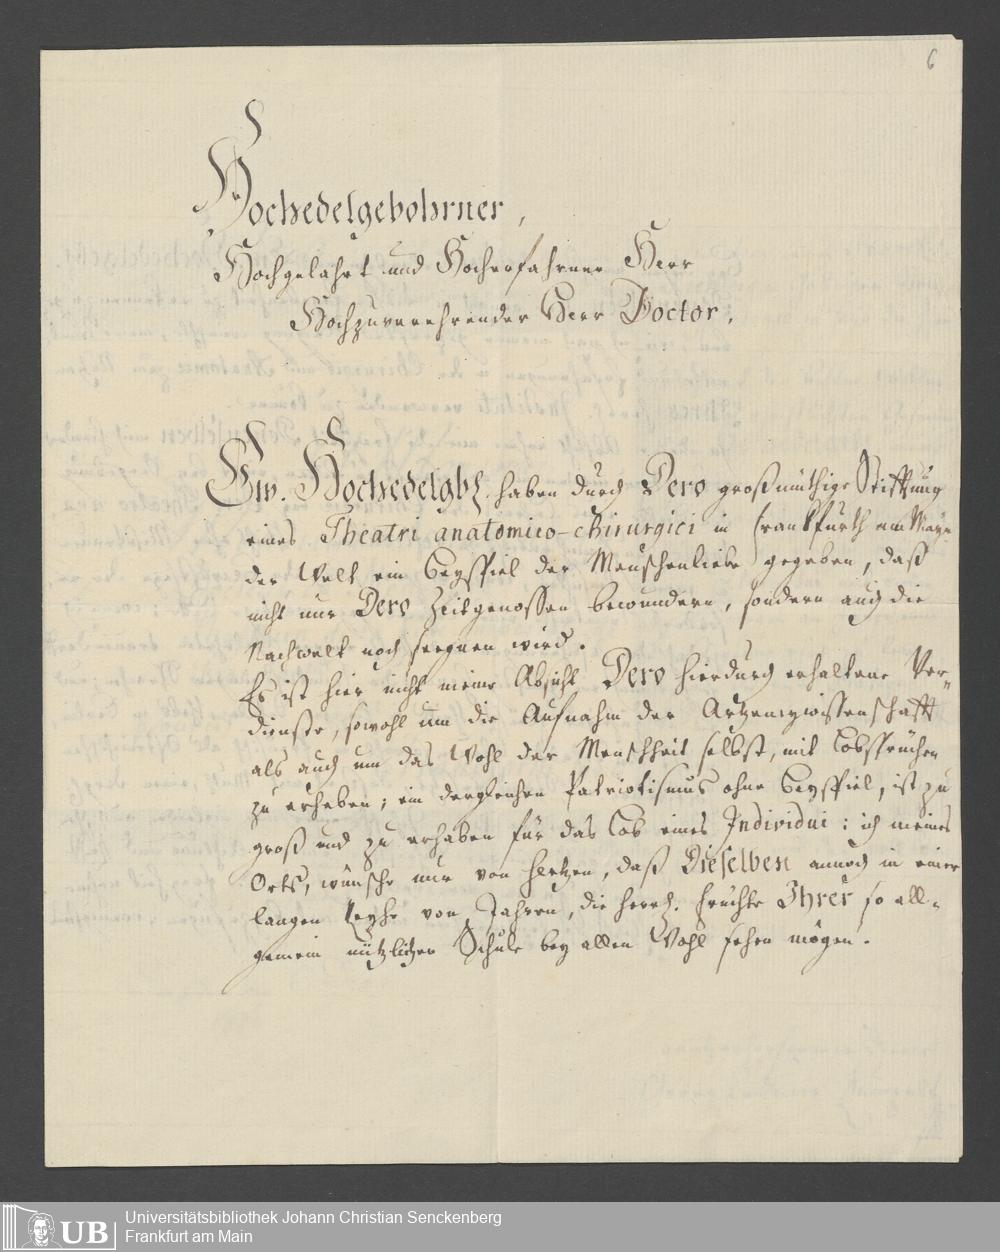 6
Hochedelgebohrner,
Hochgelahrt und Hocherfahrner Herr
Hochzuverehrender Herr Doctor,
Ew. Hochedelgb. haben durch Dero großmüthige Stifftung
eines Theatri anatomico-chirurgici in Franckfurth am Mayn
der Welt ein Beyspiel der Menschenliebe gegeben, daß
nicht nur Dero Zeitgenossen bewundern, sondern auch die
Nachwelt noch seegnen wird.
Es ist hier nicht meine Absicht Dero hierdurch erhaltene Ver-
dienste, sowohl um die Aufnahm der Artzeneywissenschafft
als auch um das Wohl der Menschheit selbst, mit Lobsprüchen
zu erheben; ein dergleichen Patriotismus ohne Beyspiel, ist zu
groß und zu erhaben für das Lob eines Individui: ich meines
Orts, wünsche nur von Hertzen, daß Dieselben annoch in einer
langen Reyhe von Jahren, die herrl. Früchte Ihrer so all-
gemein nützlichen Schule bey allen Wohl sehen mögen.
UB
Universitätsbibliothek Johann Christian Senckenberg
Frankfurt am Main